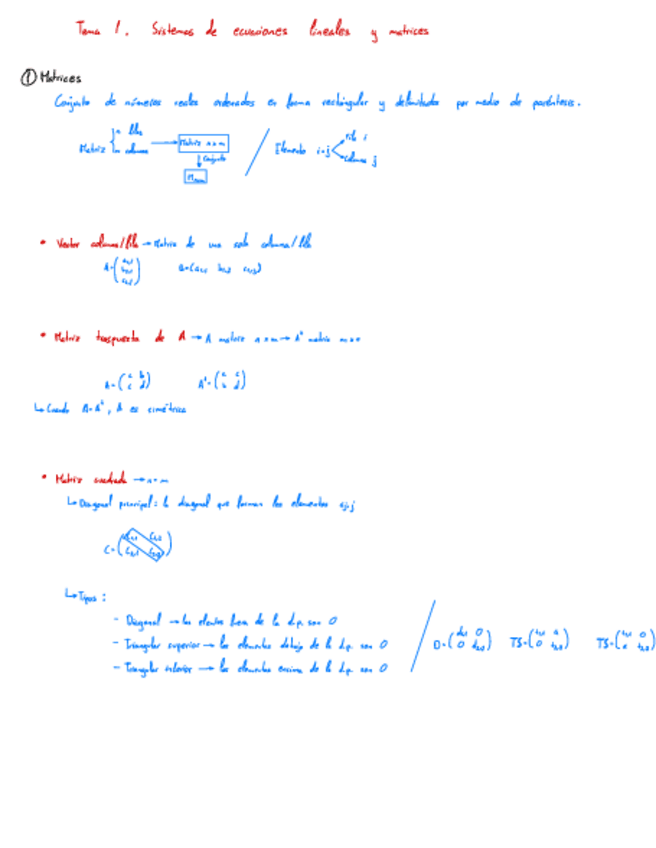 Tema 1. Sistemas de ecuaciones lineales y matrices
① Matrices
Conjunto de números reales ordenados en forma rectangular y delimitados por medio de paréntesis.
Matriz { n filas m columnas → Matriz n×m / Elemento i×j fila i columna j
↓ Conjunto
M
• Vector columna/fila → Matriz de una sola columna/fila
A=
• Matriz traspuesta de A → A matriz n×m → Aᵗ matriz m×n
A=(a b c d) Aᵗ=(a c b d)
↳ Cuando A=Aᵗ, A es simétrica
• Matriz cuadrada → n=m
↳ Diagonal principal: la diagonal que forman los elementos i=j
C=
↳ Tipos:
- Diagonal → los elentos fuera de la d.p. son 0
- Triangular superior → los elementos debajo de la d.p. son 0
- Triangular inferior → los elementos encima de la d.p. son 0
D= TS= TS=